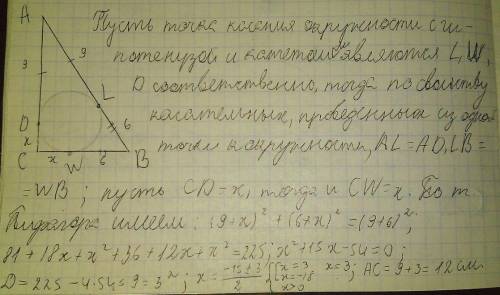 A
Пусть точка касания окружности с ги-
потенузой и катетами являются L, W,
9
9
D соответственно, тогда по свойству
L
касательных, проведенных из одной
D
6
x
точки к окружности, AL = AD, LB =
C x W 6 B
= WB ; пусть CD = x, тогда и CW = x. По т.
Пифагора имеем : (9+x)² + (6+x)² = (9+6)²;
81 + 18x + x² + 36 + 12x + x² = 225; x² + 15x - 54 = 0;
x = 3; x > 0; x = 3; AC = 9 + 3 = 12 см.